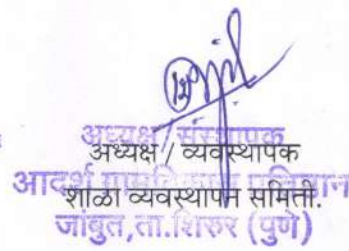 अध्यक्ष / संस्थापक
अध्यक्ष / व्यवस्थापक
आदर्श
शाळा व्यवस्थापन समिती.
जांबुत,ता.शिरुर (पुणे)